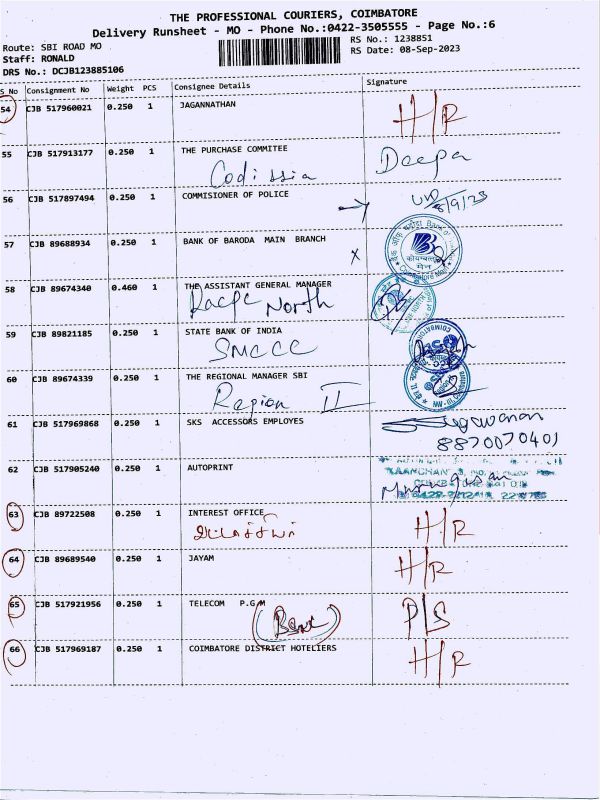 THE PROFESSIONAL COURIERS, COIMBATORE
Delivery Runsheet - MO - Phone No.:0422-3505555 - Page No.:6
Route: SBI ROAD MO
RS No.: 1238851
Staff: RONALD
RS Date: 08-Sep-2023
DRS No.: DCJB123885106
S No Consignment No Weight PCS Consignee Details Signature
54 CJB 517960021 0.250 1 JAGANNATHAN H/R
55 CJB 517913177 0.250 1 THE PURCHASE COMMITEE Deepa
Codissia
56 CJB 517897494 0.250 1 COMMISIONER OF POLICE
8/9/23
57 CJB 89688934 0.250 1 BANK OF BARODA MAIN BRANCH
x
58 CJB 89674340 0.460 1 THE ASSISTANT GENERAL MANAGER
Racpc North
59 CJB 89821185 0.250 1 STATE BANK OF INDIA
SMCCC
60 CJB 89674339 0.250 1 THE REGIONAL MANAGER SBI
Region II
61 CJB 517969868 0.250 1 SKS ACCESSORS EMPLOYES
8870070401
62 CJB 517905240 0.250 1 AUTOPRINT
Murugesan
63 CJB 89722508 0.250 1 INTEREST OFFICE H/R
64 CJB 89689540 0.250 1 JAYAM H/R
65 CJB 517921956 0.250 1 TELECOM P.G.M P/S
66 CJB 517969187 0.250 1 COIMBATORE DISTRICT HOTELIERS H/R